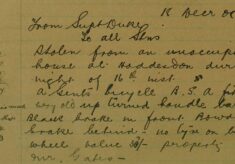 18 Decr 06
From Supt Duke
To all Stns
Stolen from an unoccup
house at Hoddesdon dur
night of 16th inst
a gents bicycle B.S.A. fi
way old up turned handle ba
Black brake in front Bowd
brake behind - no tyre on b
wheel value 50/- property
mr Gates -